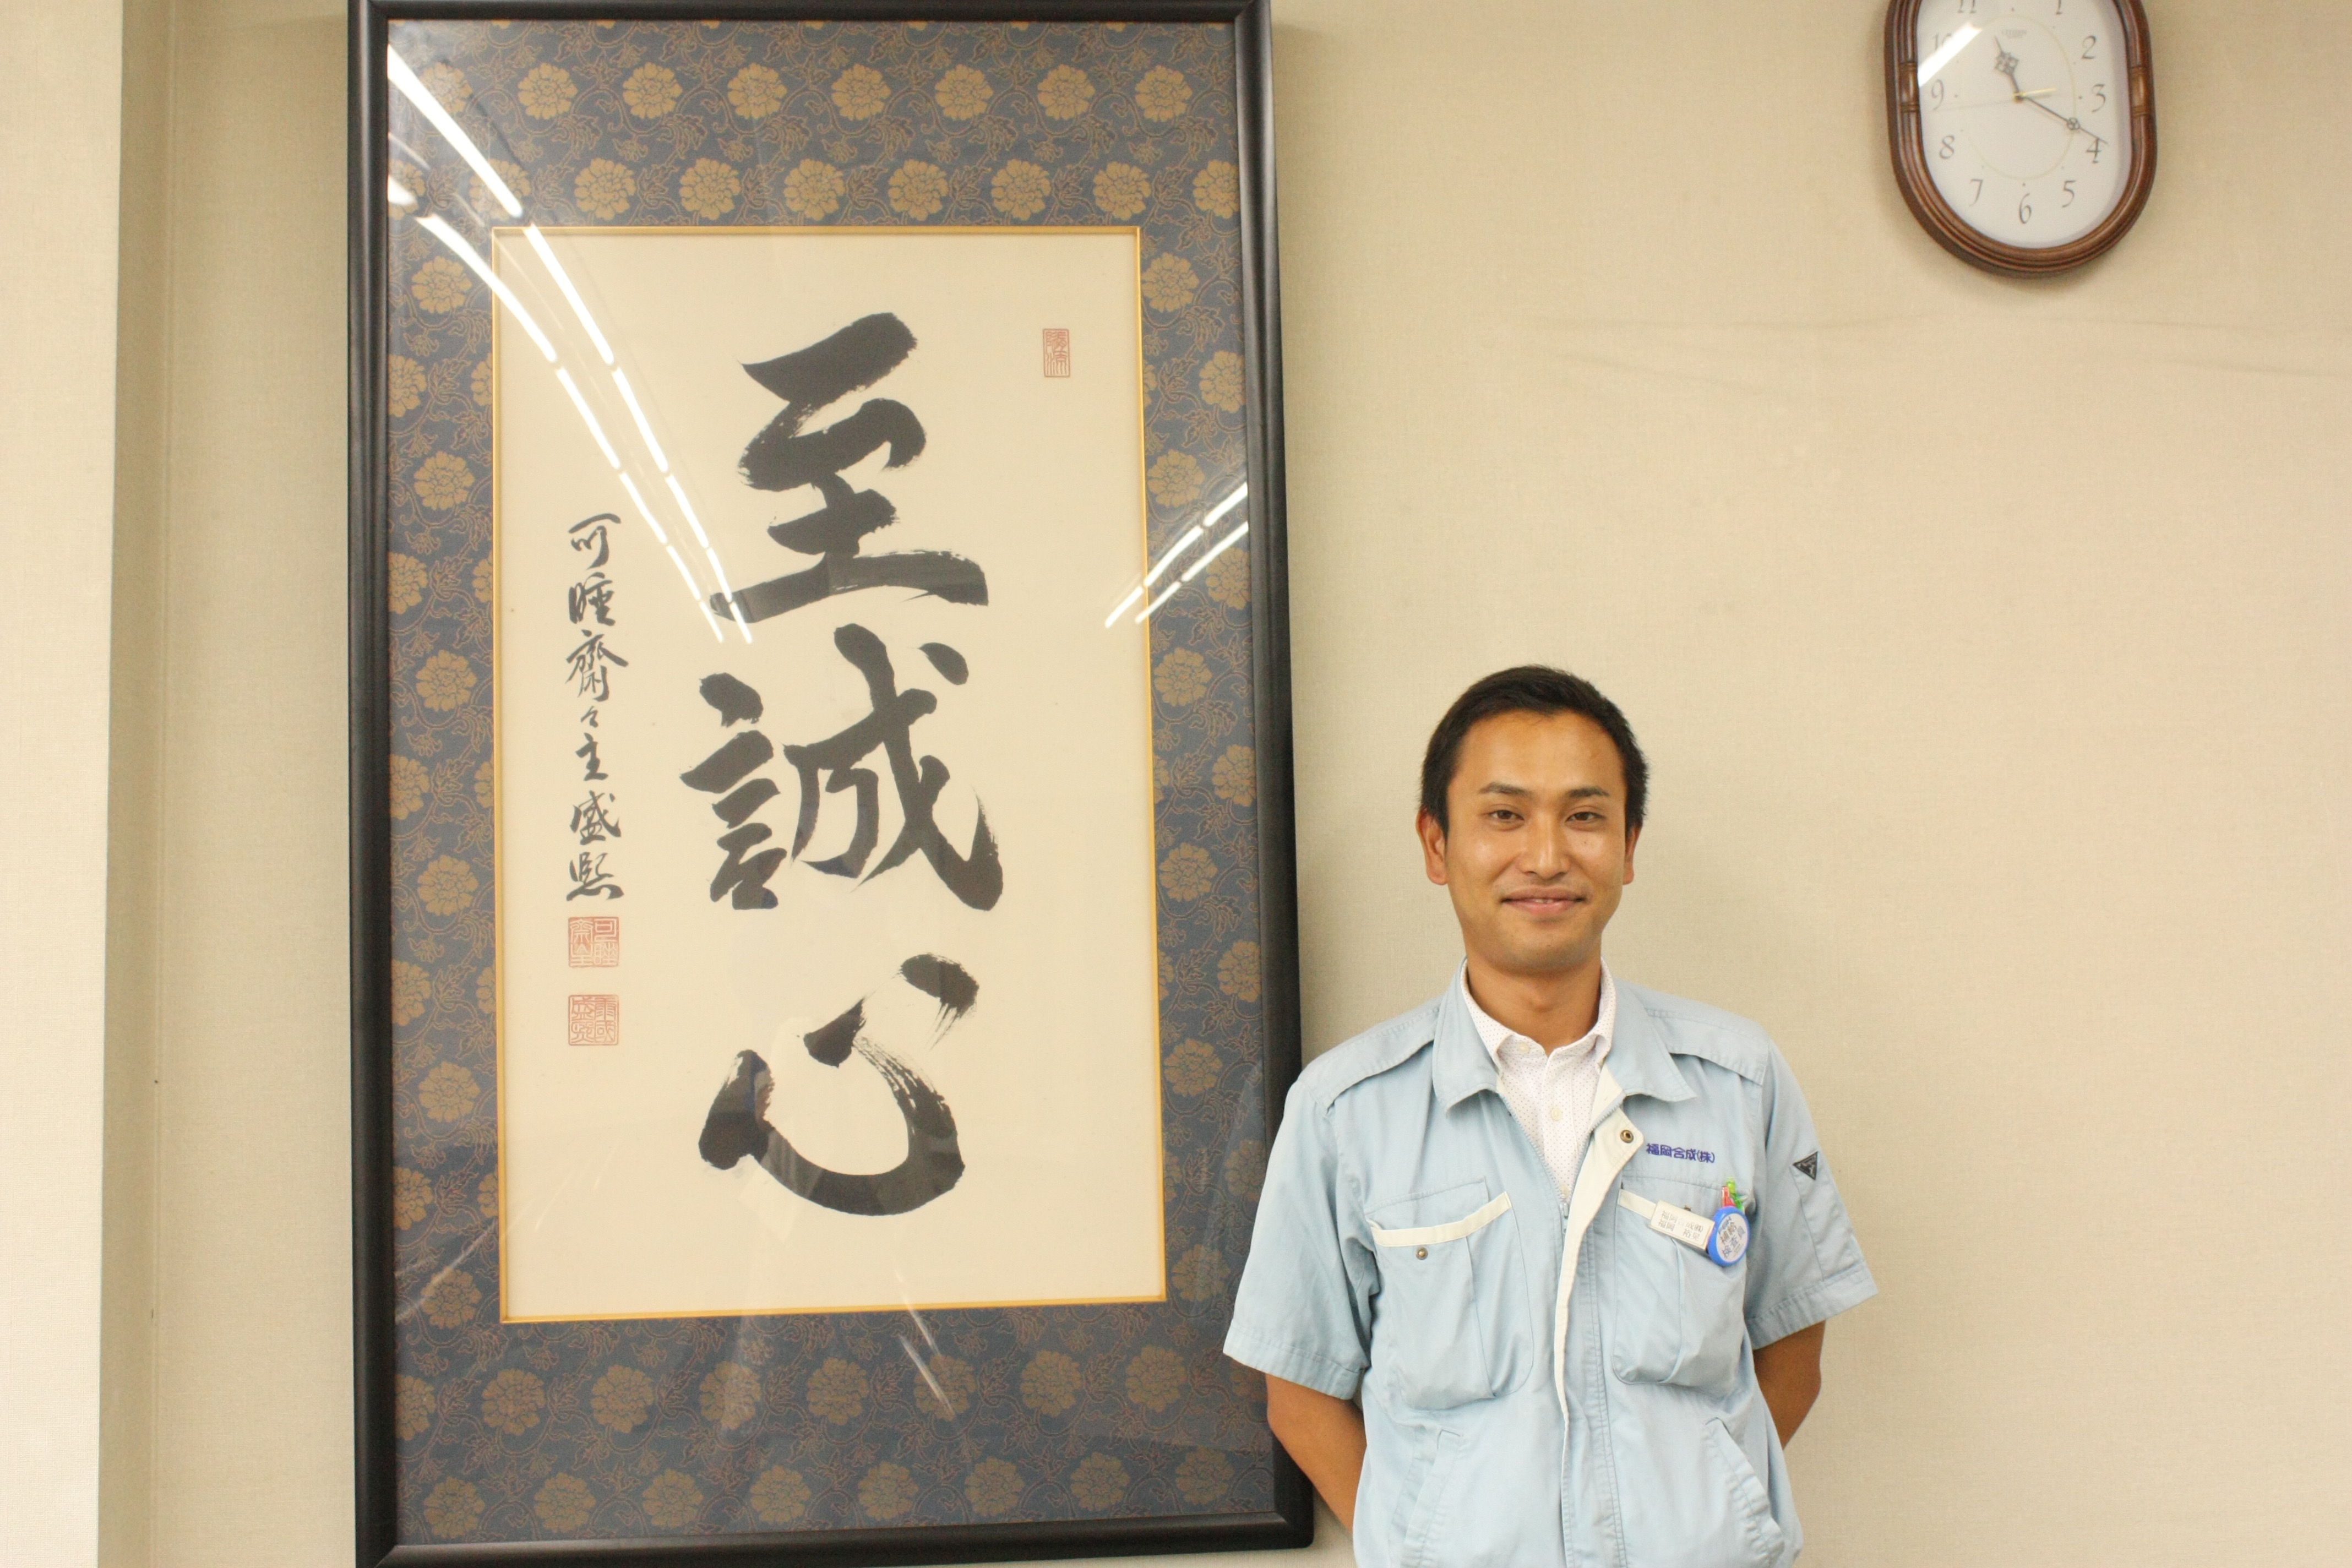 至誠心
可睡齋々主盛熙
11 1
10 2
9 3
8 4
7 5
6
福岡合成(株)